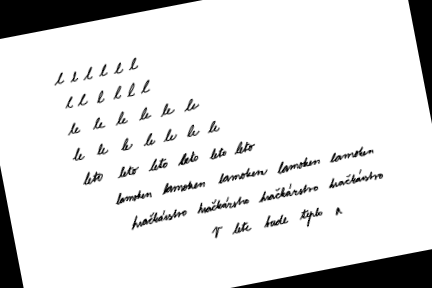 l l l l l l
l l l l l l
le le le le le le
le le le le le le le
leto leto leto leto leto leto
lamohen lamohen lamohen lamohen lamohen
hračkárstvo hračkárstvo hračkárstvo hračkárstvo
V lete bude teplo a